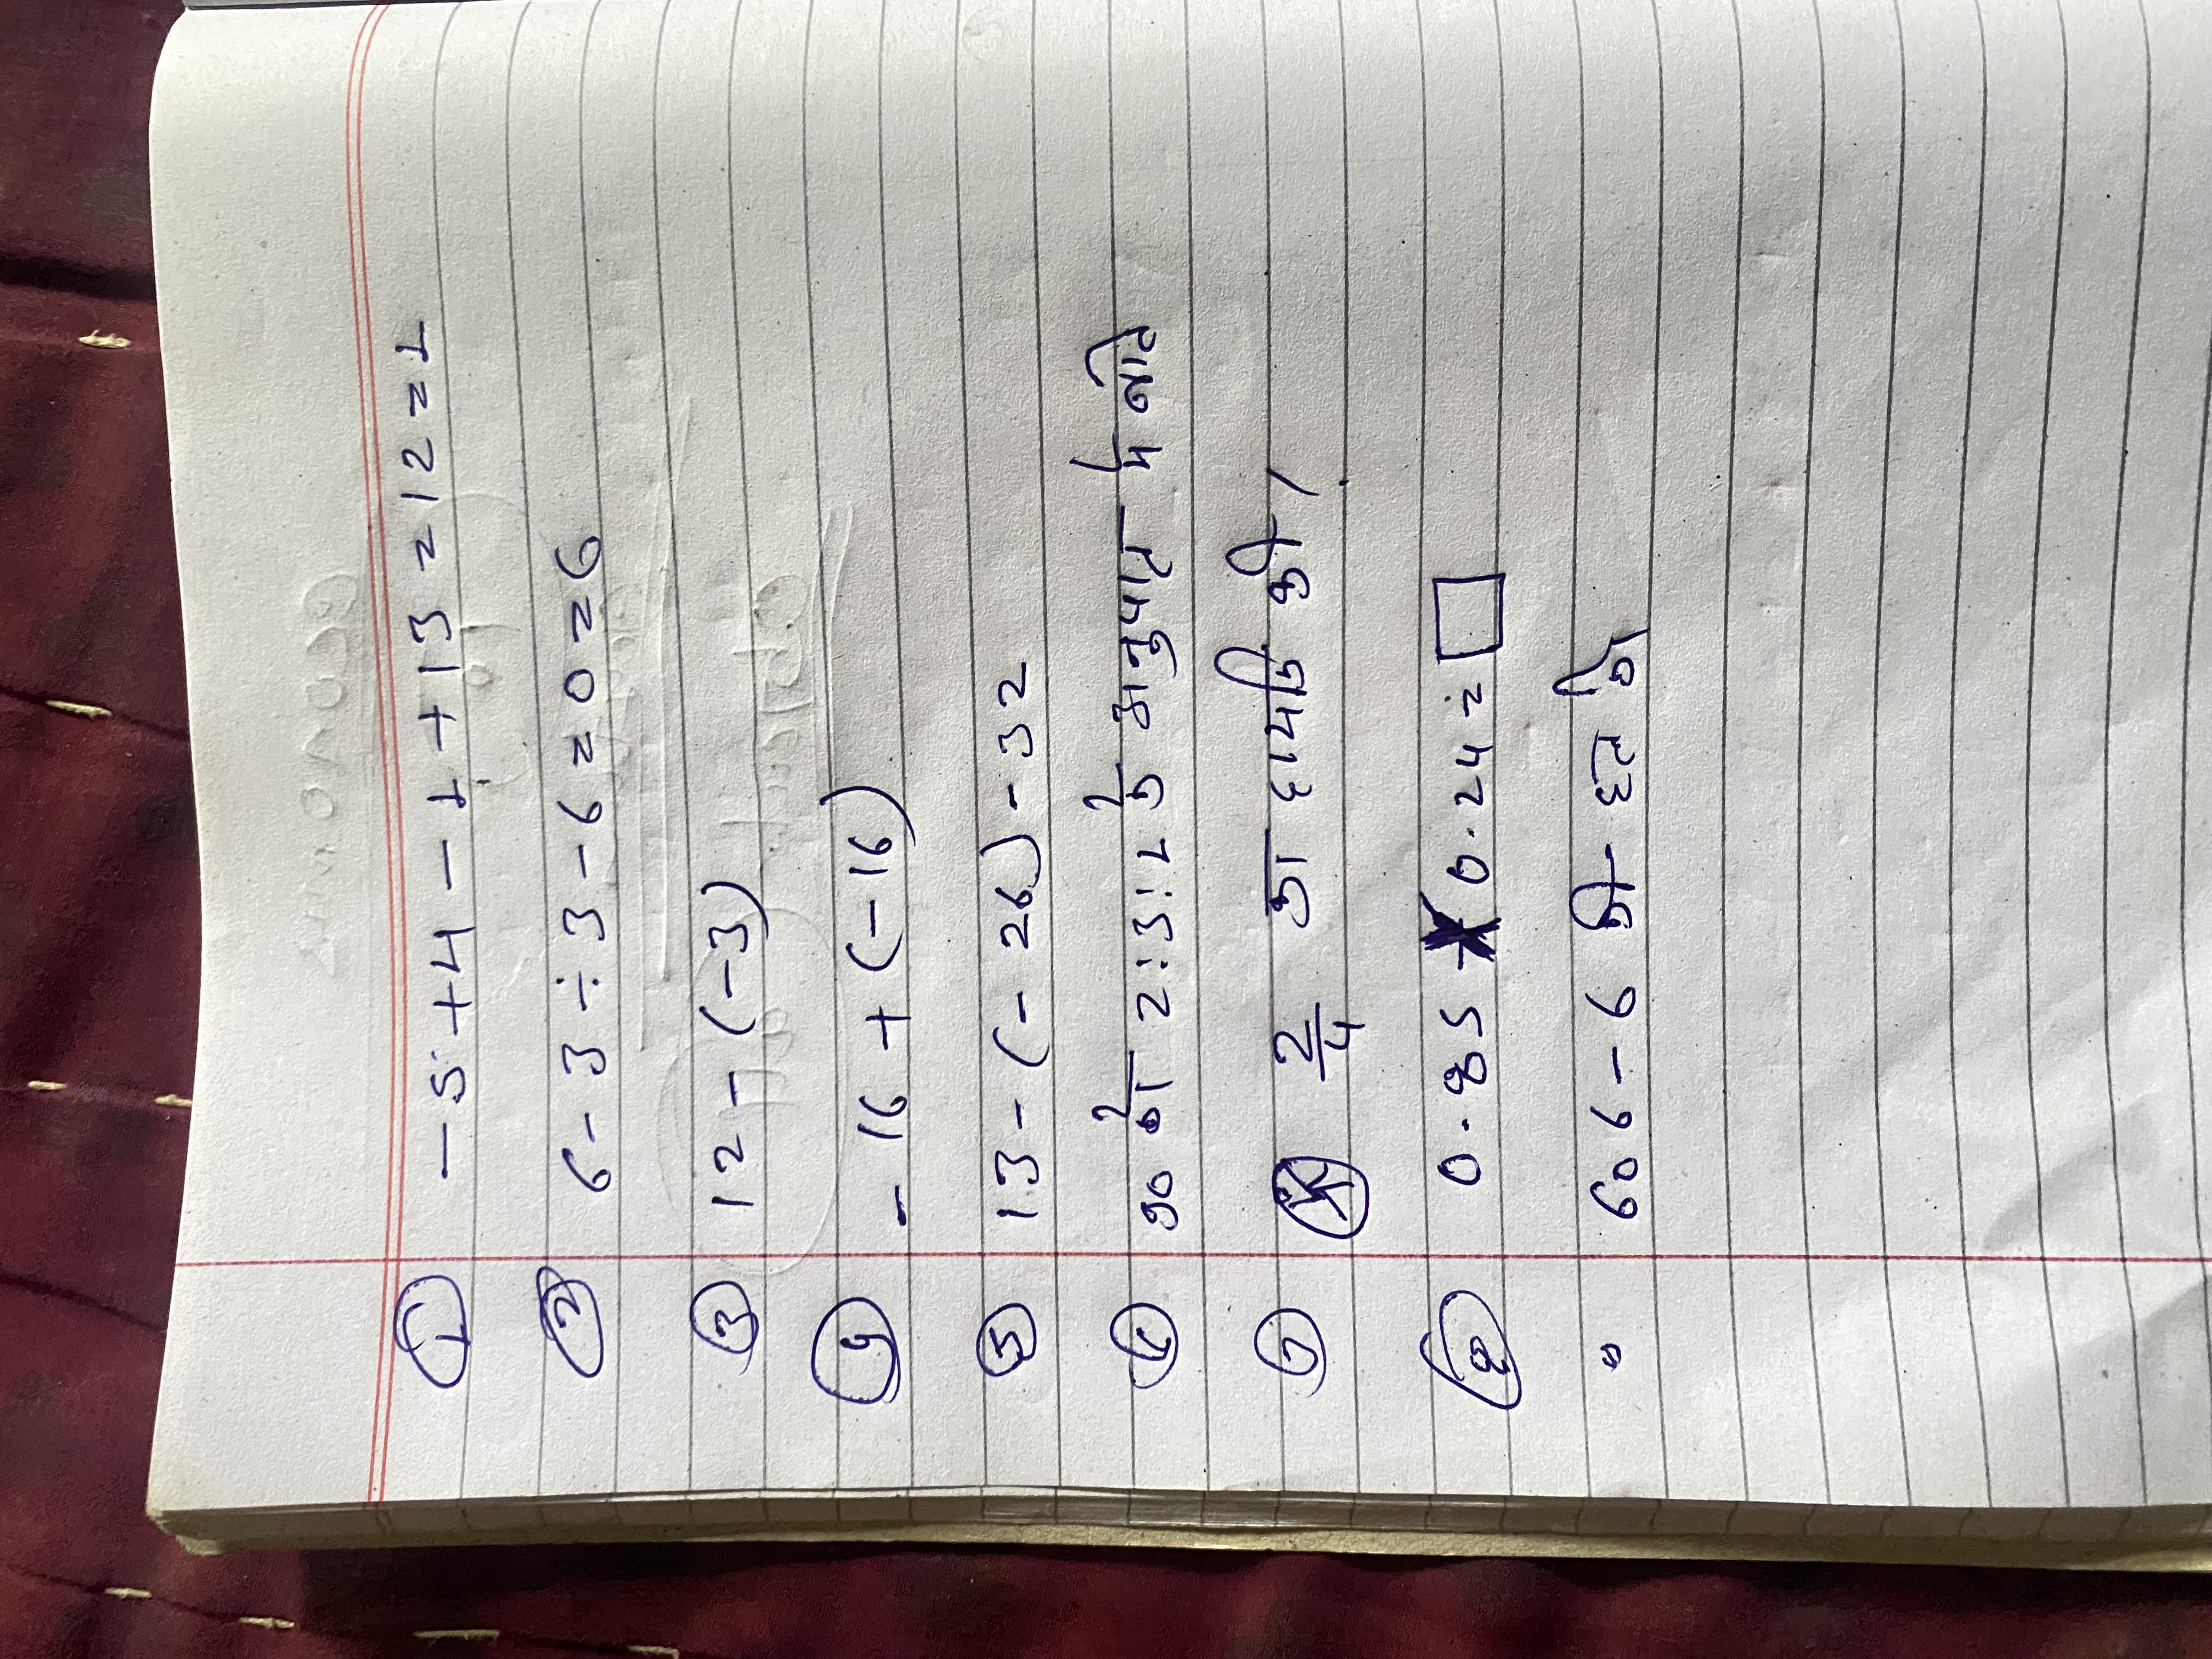 ① -5+4-1+13=12=1
② 6-3÷3-6=0=6
③ 12-(-3)
④ -16+(-16)
⑤ 13-(-26)-32
⑥ 90 को 2:3:1 के अनुपात में बांटे
⑦ 2/4 का दाशमिक की।
⑧ 0.85 0.24=□
606-6 की घत के